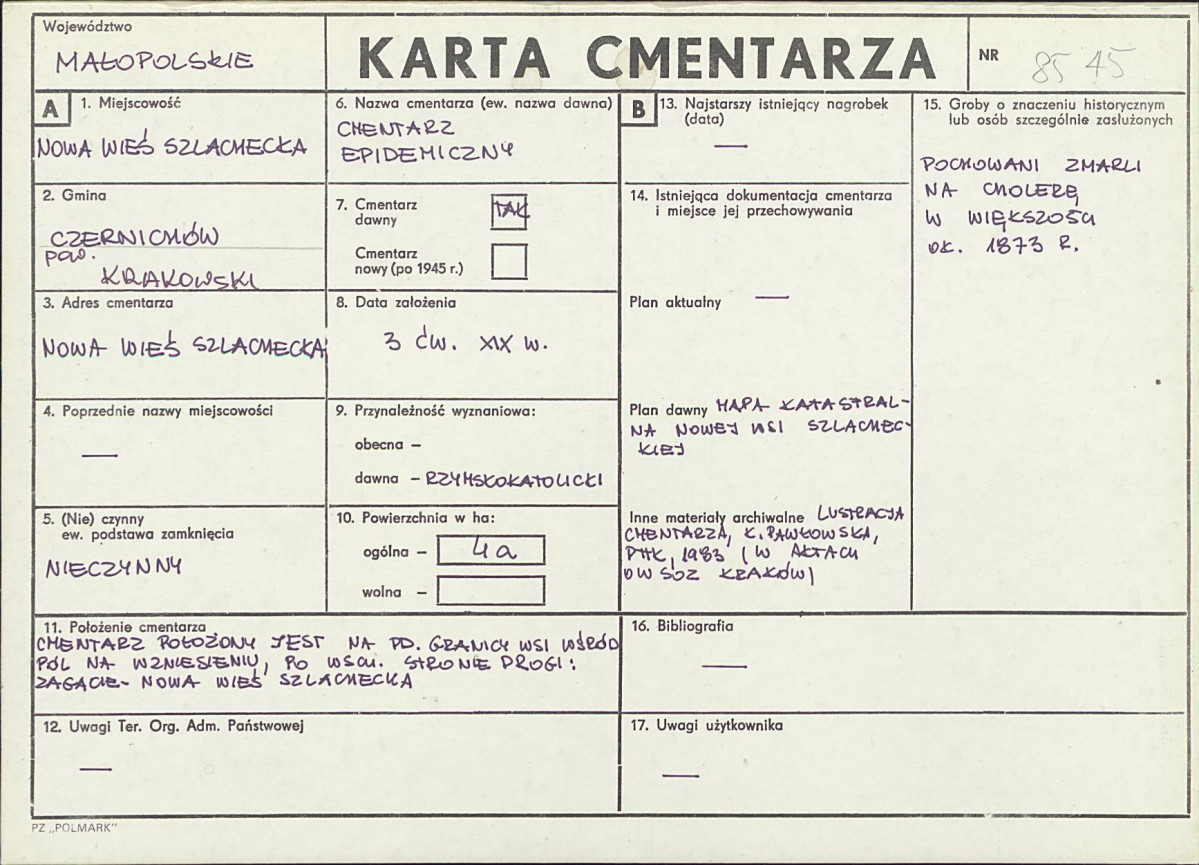 Województwo
MAŁOPOLSKIE
KARTA CMENTARZA
NR 8545
A
1. Miejscowość
NOWA WIEŚ SZLACHECKA
2. Gmina
CZERNICHÓW
pow.
KRAKOWSKI
3. Adres cmentarza
NOWA WIEŚ SZLACHECKA
4. Poprzednie nazwy miejscowości
—
5. (Nie) czynny
ew. podstawa zamknięcia
NIECZYNNY
6. Nazwa cmentarza (ew. nazwa dawna)
CMENTARZ
EPIDEMICZNY
7. Cmentarz
dawny TAK
Cmentarz
nowy (po 1945 r.)
8. Data założenia
3 ĆW. XIX W.
9. Przynależność wyznaniowa:
obecna –
dawna – RZYMSKOKATOLICKI
10. Powierzchnia w ha:
ogólna – 4a
wolna –
11. Położenie cmentarza
CMENTARZ POŁOŻONY JEST NA PD. GRANICY WSI WŚRÓD
PÓL NA WZNIESIENIU, PO WSCH. STRONIE DROGI:
ZAGACIE- NOWA WIEŚ SZLACHECKA
12. Uwagi Ter. Org. Adm. Państwowej
—
B
13. Najstarszy istniejący nagrobek
(data)
—
14. Istniejąca dokumentacja cmentarza
i miejsce jej przechowywania
Plan aktualny —
Plan dawny MAPA KATASTRAL-
NA NOWEJ WSI SZLACHEC-
KIEJ
Inne materiały archiwalne LUSTRACJA
CMENTARZA, K. PAWŁOWSKA,
PTTK, 1983 (W AKTACH
OW SOZ KRAKÓW)
15. Groby o znaczeniu historycznym
lub osób szczególnie zasłużonych
POCHOWANI ZMARLI
NA CHOLERĘ
W WIĘKSZOŚCI
OK. 1873 R.
16. Bibliografia
—
17. Uwagi użytkownika
—
PZ „POLMARK"